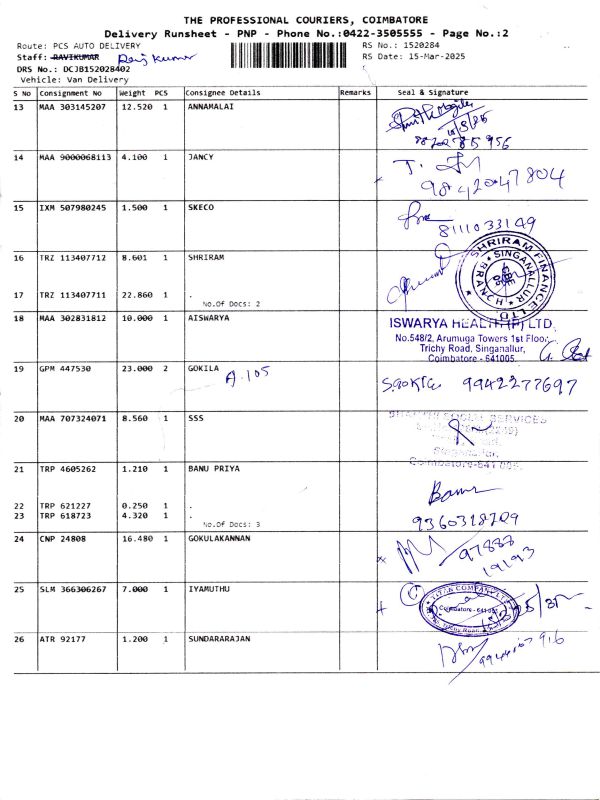 THE PROFESSIONAL COURIERS, COIMBATORE
Delivery Runsheet - PNP - Phone No.:0422-3505555 - Page No.:2
Route: PCS AUTO DELIVERY RS No.: 1520284
Staff: RAVIKUMAR Raj Kumar RS Date: 15-Mar-2025
DRS No.: DCJB152028402
Vehicle: Van Delivery
S No Consignment No Weight PCS Consignee Details Remarks Seal & Signature
13 MAA 303145207 12.520 1 ANNAMALAI
14 MAA 9000068113 4.100 1 JANCY
9842047804
15 IXM 507980245 1.500 1 SKECO
8111033149
16 TRZ 113407712 8.601 1 SHRIRAM
SHRIRAM FINANCE LTD. SINGANALLUR BRANCH
17 TRZ 113407711 22.860 1 .
No.Of Docs: 2
18 MAA 302831812 10.000 1 AISWARYA
ISWARYA HEALTH (P) LTD
No.548/2, Arumuga Towers 1st Floor,
Trichy Road, Singanallur,
Coimbatore - 641005.
19 GPM 447530 23.000 2 GOKILA
A.105 9942277697
20 MAA 707324071 8.560 1 SSS
SOCIAL SERVICES
Singanallur,
Coimbatore-641 005.
21 TRP 4605262 1.210 1 BANU PRIYA
Banu
22 TRP 621227 0.250 1 .
23 TRP 618723 4.320 1 .
9360318709
No.Of Docs: 3
24 CNP 24808 16.480 1 GOKULAKANNAN
97888
19193
25 SLM 366306267 7.000 1 IYAMUTHU
TITAN COMPANY LTD
Coimbatore - 641
26 ATR 92177 1.200 1 SUNDARARAJAN